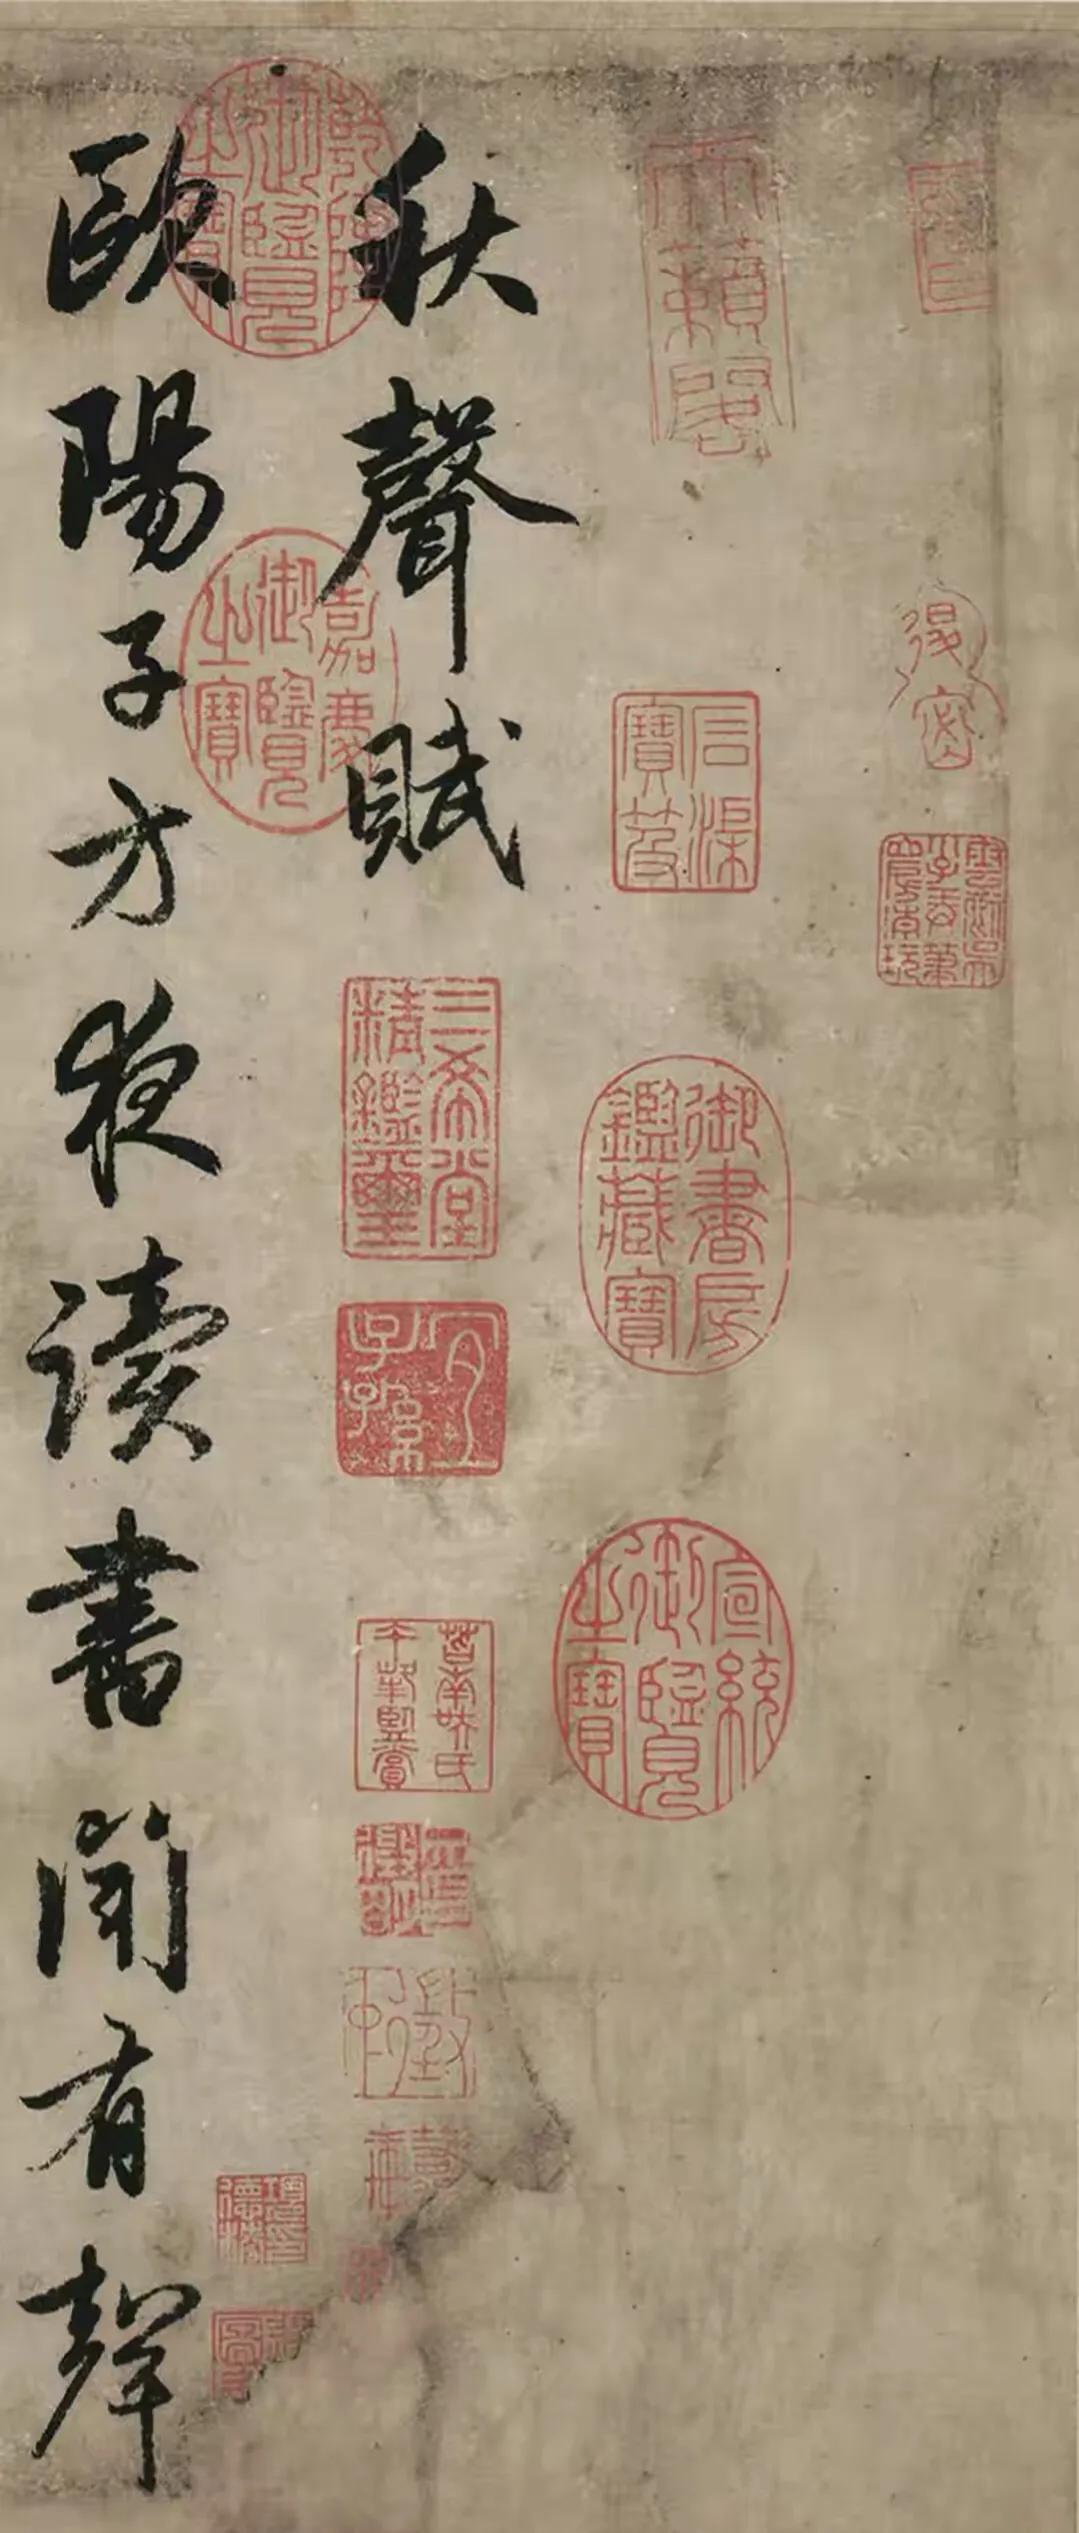 秋聲賦
歐陽子方夜讀書聞有聲
天籟閣
石渠寶笈
御書房鑑藏寶
宣統御覽之寶
乾隆御覽之寶
嘉慶御覽之寶
三希堂精鑑璽
宜子孫